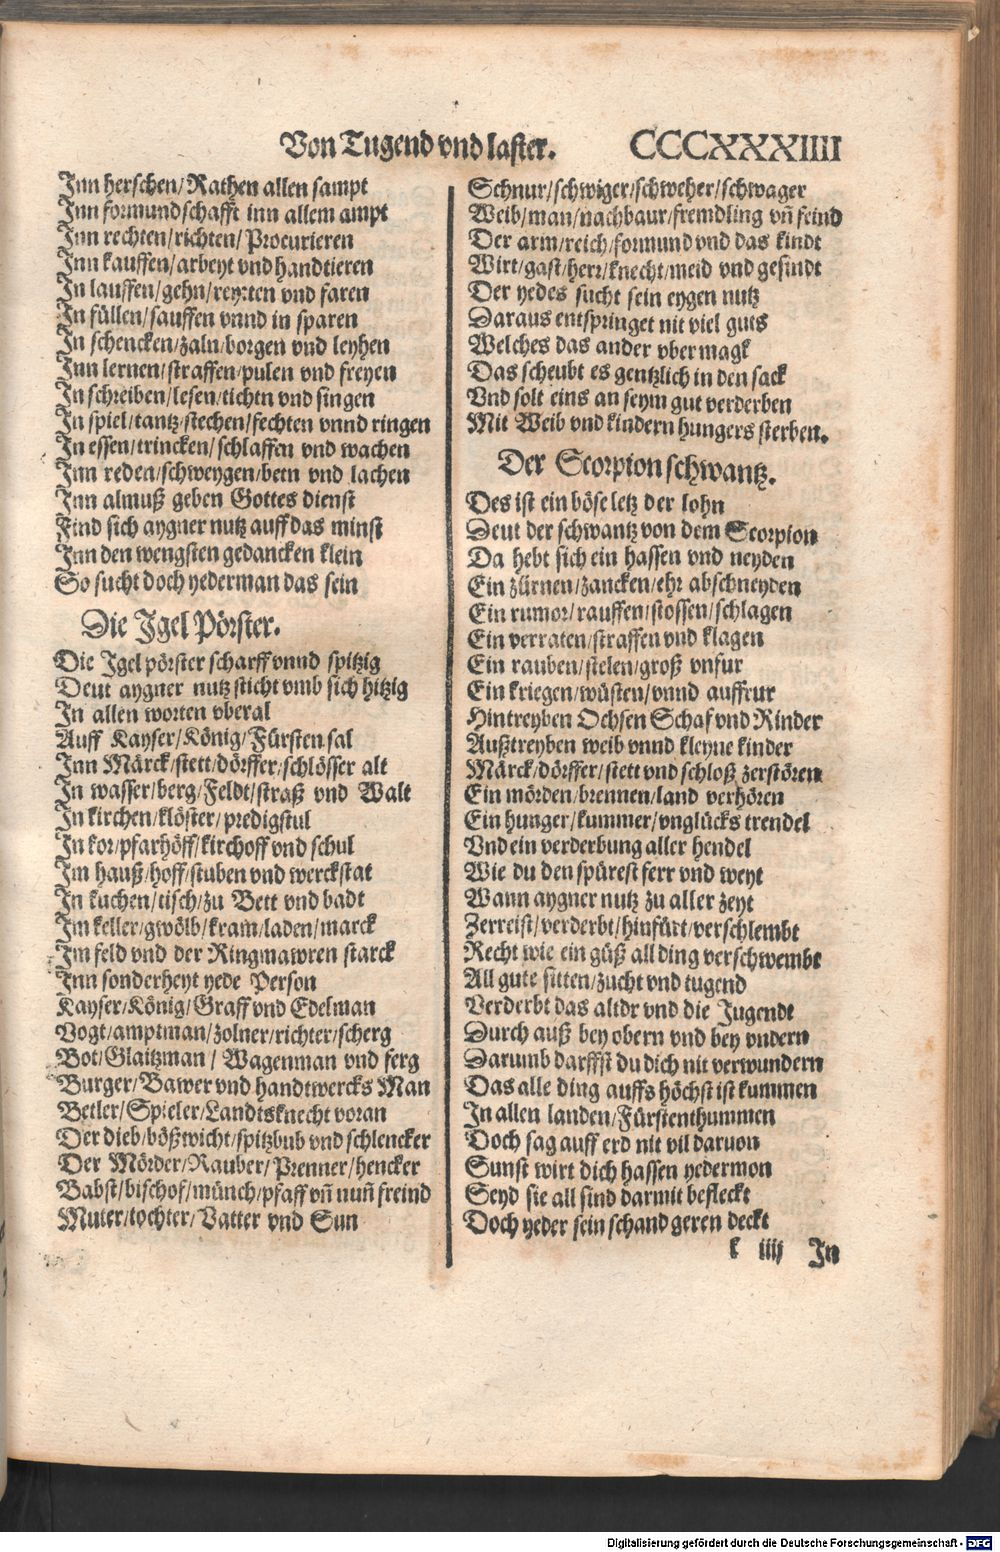 Von Tugend vnd laster. CCCXXXIIII
Inn herschen/Rathen allen sampt
Inn formundschafft inn allem ampt
Inn rechten/richten/Procurieren
Inn kauffen/arbeyt vnd handtieren
In lauffen/gehn/reytten vnd faren
In füllen/sauffen vnnd in sparen
In schencken/zaln/borgen vnd leyhen
Inn lernen/straffen/pulen vnd freyen
In schreiben/lesen/tichtn vnd singen
In spiel/tantz/stechen/fechten vnnd ringen
In essen/trincken/schlaffen vnd wachen
Inn reden/schweygen/betn vnd lachen
Inn almuß geben Gottes dienst
Find sich aygner nutz auff das minst
Inn den wengsten gedancken klein
So sucht doch yederman das sein
Die Igel Pörster.
Die Igel pörster scharff vnnd spitzig
Deut aygner nutz sticht vmb sich hitzig
In allen worten vberal
Auff Kayser/König/Fürsten sal
Inn Märck/stett/dörffer/schlösser alt
In wasser/berg/Feldt/straß vnd Walt
In kirchen/klöster/predigstul
In kor/pfarhöff/kirchoff vnd schul
Im hauß/hoff/stuben vnd werckstat
In kuchen/tisch/zu Bett vnd badt
Im keller/gwölb/kram/laden/marck
Im feld vnd der Ringmawren starck
Inn sonderheyt yede Person
Kayser/König/Graff vnd Edelman
Vogt/amptman/zolner/richter/scherg
Bot/Glaitzman/Wagenman vnd ferg
Burger/Bawer vnd handtwercks Man
Betler/Spieler/Landtsknecht voran
Der dieb/bößwicht/spitzbub vnd schlencker
Der Mörder/Rauber/Prenner/hencker
Babst/bischof/münch/pfaff vñ nuñ freind
Muter/tochter/Vatter vnd Sun
Schnur/schwiger/schweher/schwager
Weib/man/nachbaur/fremdling vñ feind
Der arm/reich/formund vnd das kindt
Wirt/gast/herr/knecht/meid vnd gesindt
Der yedes sucht sein eygen nutz
Daraus entspringet nit viel guts
Welches das ander vber magk
Das scheubt es gentzlich in den sack
Vnd solt eins an seym gut verderben
Mit Weib vnd kindern hungers sterben.
Der Scorpion schwantz.
Des ist ein böse letz der lohn
Deut der schwantz von dem Scorpion
Da hebt sich ein hassen vnd neyden
Ein zürnen/zancken/ehr abschneyden
Ein rumor/rauffen/stossen/schlagen
Ein verraten/straffen vnd klagen
Ein rauben/stelen/groß vnfur
Ein kriegen/wüsten/vnnd auffrur
Hintreyben Ochsen Schaf vnd Rinder
Außtreyben weib vnnd kleyne kinder
Märck/dörffer/stett vnd schloß zerstören
Ein mörden/brennen/land verhören
Ein hunger/kummer/vnglücks trendel
Vnd ein verderbung aller hendel
Wie du den spürest ferr vnd weyt
Wann aygner nutz zu aller zeyt
Zerreist/verderbt/hinfürt/verschlembt
Recht wie ein güß all ding verschwembt
All gute sitten/zucht vnd tugend
Verderbt das altdr vnd die Jugendt
Durch auß bey obern vnd bey vndern
Darumb darffst du dich nit verwundern
Das alle ding auffs höchst ist kummen
In allen landen/Fürstenthummen
Doch sag auff erd nit vil daruon
Sunst wirt dich hassen yedermon
Seyd sie all sind darmit befleckt
Doch yeder sein schand geren deckt
k iiij In
Digitalisierung gefördert durch die Deutsche Forschungsgemeinschaft - DFG